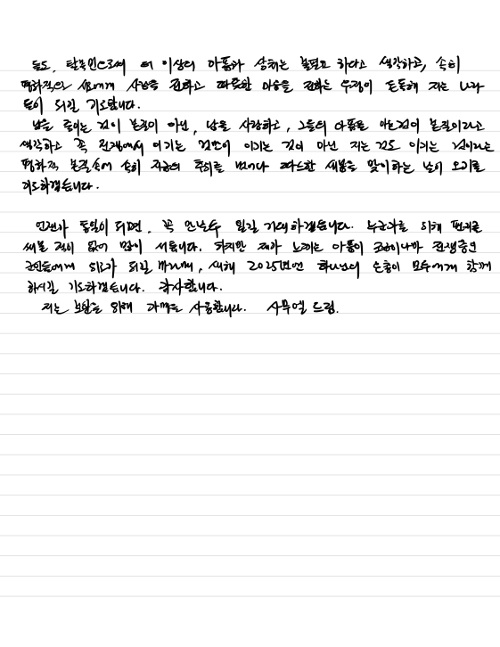 저도, 탈북민으로써 더 이상의 아픔과 상처는 불필요 하다고 생각하고, 속히
평화적인 사람에게 사랑을 전하고 따뜻한 마음을 전하는 우정이 돈독해 지는 나라
들이 되길 기도합니다.
남을 죽이는 것이 본질이 아닌, 남을 사랑하고, 그들의 아픔을 아는것이 본질이라고
생각하고 꼭 전쟁에서 이기는 것만이 이기는 것이 아닌 지는 것도 이기는 것이라는
평화적 본질 속에 속히 지금의 추위를 벗어나 따뜻한 새봄을 맞이하는 날이 오기를
기도하겠습니다.
언젠가 통일이 되면, 꼭 만날수 있길 기대하겠습니다. 누군가를 위해 편지를
써본 적이 없어 많이 서툽니다. 하지만 제가 느끼는 마음이 조금이나마 전쟁중인
군인들에게 위로가 되길 바라며, 새해 2025년엔 하나님의 손길이 모두에게 함께
하시길 기도하겠습니다. 감사합니다.
저는 보안을 위해 가명을 사용합니다. 사무엘 드림.